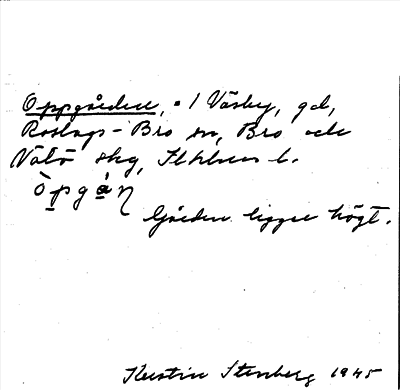 Oppgården, 1 Väsby, gd,
Roslags-Bro sn, Bro och
Vätö skg, Sthlms l.
òpgàṇ
Gården ligger högt.
Kerstin Stenberg 1945